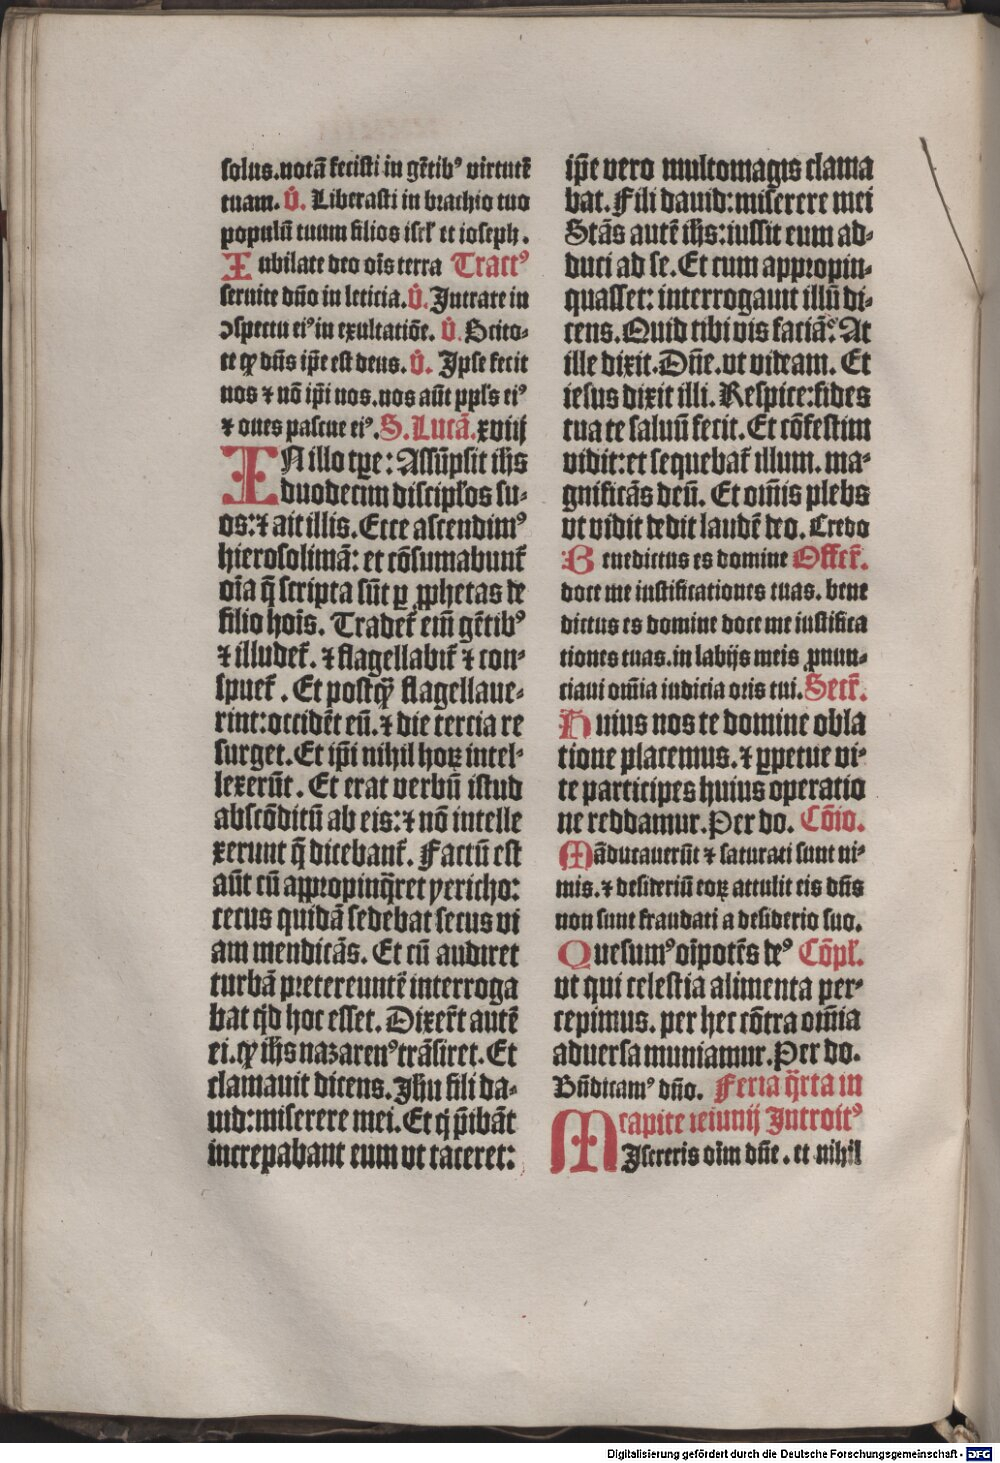 solus.notā fecisti in gētibꝰ virtutē
tuam. V̊. Liberasti in brachio tuo
populū tuum filios isrl̛ et ioseph.
Iubilate deo oīs terra Tractꝰ
seruite dño in leticia. V̊. Intrate in
ɔspectu eiꝰ in exultatiōe. V̊. Scito-
te ꝙ dñs ip̄e est deus. V̊. Ipse fecit
nos ⁊ nō ip̄i nos.nos aūt ppl̛s eiꝰ
⁊ oues pascue eiꝰ. S. Lucā. xviij
IN illo tp̱e: Assūpsit ih̄s
duodecim discipl̛os su-
os:⁊ ait illis. Ecce ascendimꝰ
hierosolimā: et cōsumabunt᷑
oīa q̄ scripta sūt ꝑ ꝓphetas de
filio hoīs. Tradet᷑ em̄ gētibꝰ
⁊ illudet᷑. ⁊ flagellabit᷑ ⁊ con-
spuet᷑. Et postꝙ̄ flagellaue-
rint:occidēt eū.⁊ die tercia re
surget. Et ip̄i nihil hoꝝ intel-
lexerūt. Et erat verbū istud
abscōditū ab eis:⁊ nō intelle
xerunt q̄ dicebant᷑. Factū est
aūt cū appropinq̄ret yericho:
cecus quidā sedebat secus vi
am mendicās. Et cū audiret
turbā pretereuntē interroga
bat qͥd hoc esset. Dixer̄t autē
ei.ꝙ ih̄s nazarenꝰ trāsiret. Et
clamauit dicens. Ih̄u fili da-
uid:miserere mei. Et qͥ p̄ibāt
increpabant eum vt taceret:
ip̄e vero multomagis clama
bat. Fili dauid:miserere mei
Stās autē ih̄s:iussit eum ad-
duci ad se. Et cum appropin-
quasset: interrogauit illū di-
cens. Quid tibi vis faciā? At
ille dixit. Dñe.vt videam. Et
iesus dixit illi. Respice:fides
tua te saluū fecit. Et cōfestim
vidit:et sequebat᷑ illum. ma-
gnificās deū. Et oīm̄is plebs
vt vidit dedit laudē deo. Credo
Benedictus es domine Offer᷑.
doce me iustificationes tuas. bene
dictus es domine doce me iustifica
tiones tuas.in labijs meis ꝓnun-
ciaui om̄ia iudicia oris tui. Secr᷑.
Huius nos te domine obla
tione placemus.⁊ ꝑpetue vi-
te participes huius operatio
ne reddamur.Per do. Cōio.
Māducauerūt ⁊ saturati sunt ni-
mis.⁊ desideriū eoꝝ attulit eis dñs
non sunt fraudati a desiderio suo.
Quesumꝰ oīpotēs deꝰ Cōpl̛.
vt qui celestia alimenta per-
cepimus. per hec cōtra om̄ia
aduersa muniamur.Per do.
Bn̄dicamꝰ dño. Feria q̄rta in
capite ieiunij Introitꝰ
MIsereris oīm dñe.et nihil
Digitalisierung gefördert durch die Deutsche Forschungsgemeinschaft - DFG